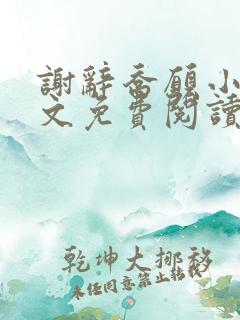 謝辭喬願小
文免費閱讀
乾坤大挪移
未經同意禁止轉載